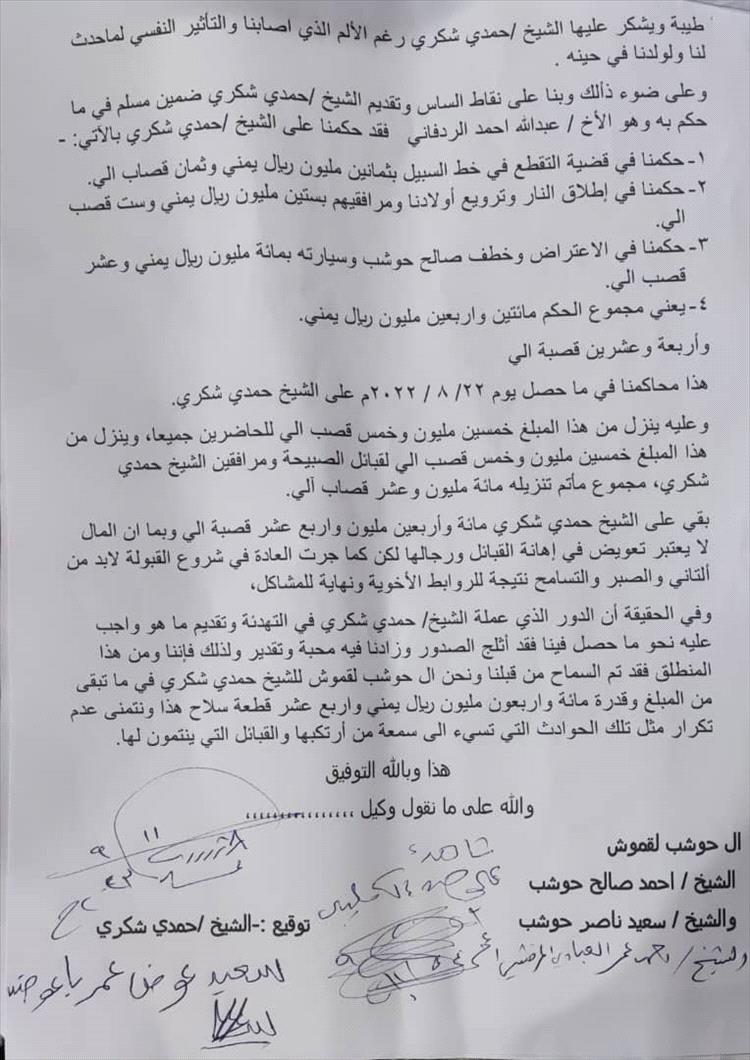 طيبة ويشكر عليها الشيخ /حمدي شكري رغم الألم الذي اصابنا والتأثير النفسي لماحدث
لنا ولولدنا في حينه .
وعلى ضوء ذألك وبنا على نقاط الساس وتقديم الشيخ /حمدي شكري ضمين مسلم في ما
حكم به وهو الأخ / عبدالله احمد الردفاني فقد حكمنا على الشيخ /حمدي شكري بالآتي: -
١-حكمنا في قضية التقطع في خط السبيل بثمانين مليون ريال يمني وثمان قصاب الي.
٢-حكمنا في إطلاق النار وترويع أولادنا ومرافقيهم بستين مليون ريال يمني وست قصب
الي.
٣-حكمنا في الاعتراض وخطف صالح حوشب وسيارته بمائة مليون ريال يمني وعشر
قصب الي.
٤-يعني مجموع الحكم مائتين واربعين مليون ريال يمني.
وأربعة وعشرين قصبة الي
هذا محاكمنا في ما حصل يوم ٢٢/ ٨ / ٢٠٢٢م على الشيخ حمدي شكري.
وعليه ينزل من هذا المبلغ خمسين مليون وخمس قصب الي للحاضرين جميعا، وينزل من
هذا المبلغ خمسين مليون وخمس قصب الي لقبائل الصبيحة ومرافقين الشيخ حمدي
شكري، مجموع مأتم تنزيله مائة مليون وعشر قصاب آلي.
بقي على الشيخ حمدي شكري مائة وأربعين مليون واربع عشر قصبة الي وبما ان المال
لا يعتبر تعويض في إهانة القبائل ورجالها لكن كما جرت العادة في شروع القبولة لابد من
ألتاني والصبر والتسامح نتيجة للروابط الأخوية ونهاية للمشاكل،
وفي الحقيقة أن الدور الذي عملة الشيخ/ حمدي شكري في التهدئة وتقديم ما هو واجب
عليه نحو ما حصل فينا فقد أثلج الصدور وزادنا فيه محبة وتقدير ولذلك فإننا ومن هذا
المنطلق فقد تم السماح من قبلنا ونحن ال حوشب لقموش للشيخ حمدي شكري في ما تبقى
من المبلغ وقدرة مائة واربعون مليون ريال يمني واربع عشر قطعة سلاح هذا ونتمنى عدم
تكرار مثل تلك الحوادث التي تسيء الى سمعة من أرتكبها والقبائل التي ينتمون لها.
هذا وبالله التوفيق
والله على ما نقول وكيل ،،،،،،،،،،،،،،،،
ال حوشب لقموش
الشيخ / احمد صالح حوشب
والشيخ / سعيد ناصر حوشب توقيع :-الشيخ /حمدي شكري
والشيخ /
سعيد عوض عمر باعوضه